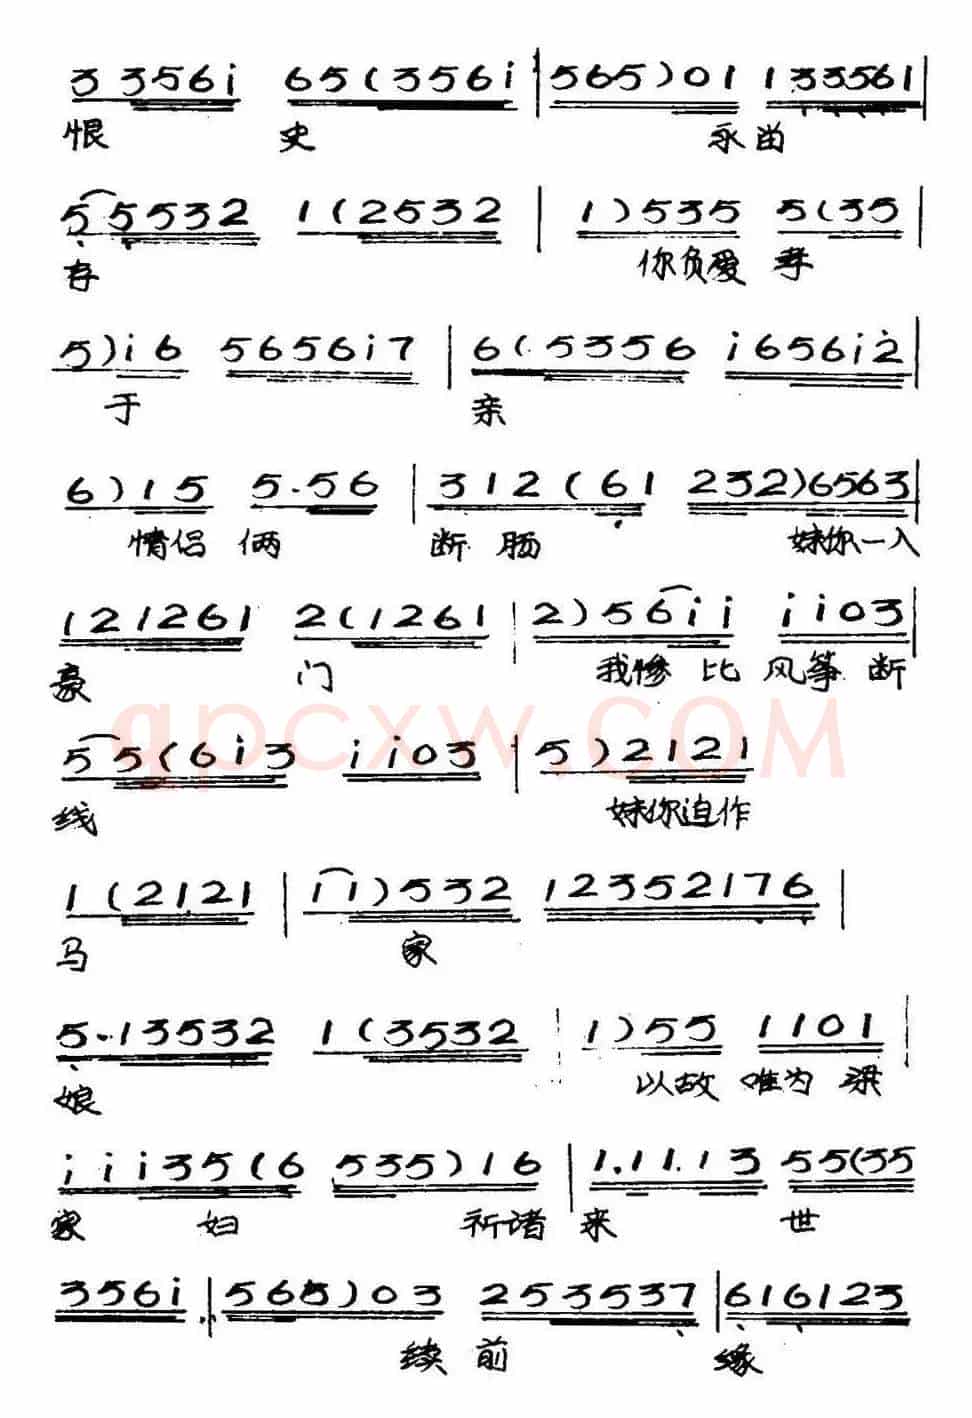 3 3 5 6 i 6 5 ( 3 5 6 i | 5 6 5 ) 0 1 1 3 3 5 6 1 |
恨 史 永留
5 5 5 3 2 1 ( 2 5 3 2 | 1 ) 5 3 5 5 ( 3 5 |
存 你负爱 孝
5 ) i 6 5 6 5 6 i 7 | 6 ( 5 3 5 6 i 6 5 6 i 2 |
于 亲
6 ) 1 5 5 . 5 6 | 3 1 2 ( 6 1 2 3 2 ) 6 5 6 3 |
情侣 俩 断 肠 妹你一入
1 2 1 2 6 1 2 ( 1 2 6 1 | 2 ) 5 6 i i i i 0 3 |
豪 门 我惨 比 风筝 断
qpcxw.COM
5 5 ( 6 i 3 i i 0 3 | 5 ) 2 1 2 1
线 妹你迫作
1 ( 2 1 2 1 | 1 1 ) 5 3 2 1 2 3 5 2 1 7 6 |
马 家
5 . . 1 3 5 3 2 1 ( 3 5 3 2 | 1 ) 5 5 1 1 0 1 |
娘 以故 唯为 梁
i i i 3 5 ( 6 5 3 5 ) 1 6 | 1 . 1 1 . 1 3 5 5 ( 3 5
家 妇 祈诸 来 世
3 5 6 i | 5 6 5 ) 0 3 2 5 3 5 3 7 | 6 1 6 1 2 3
续 前 缘